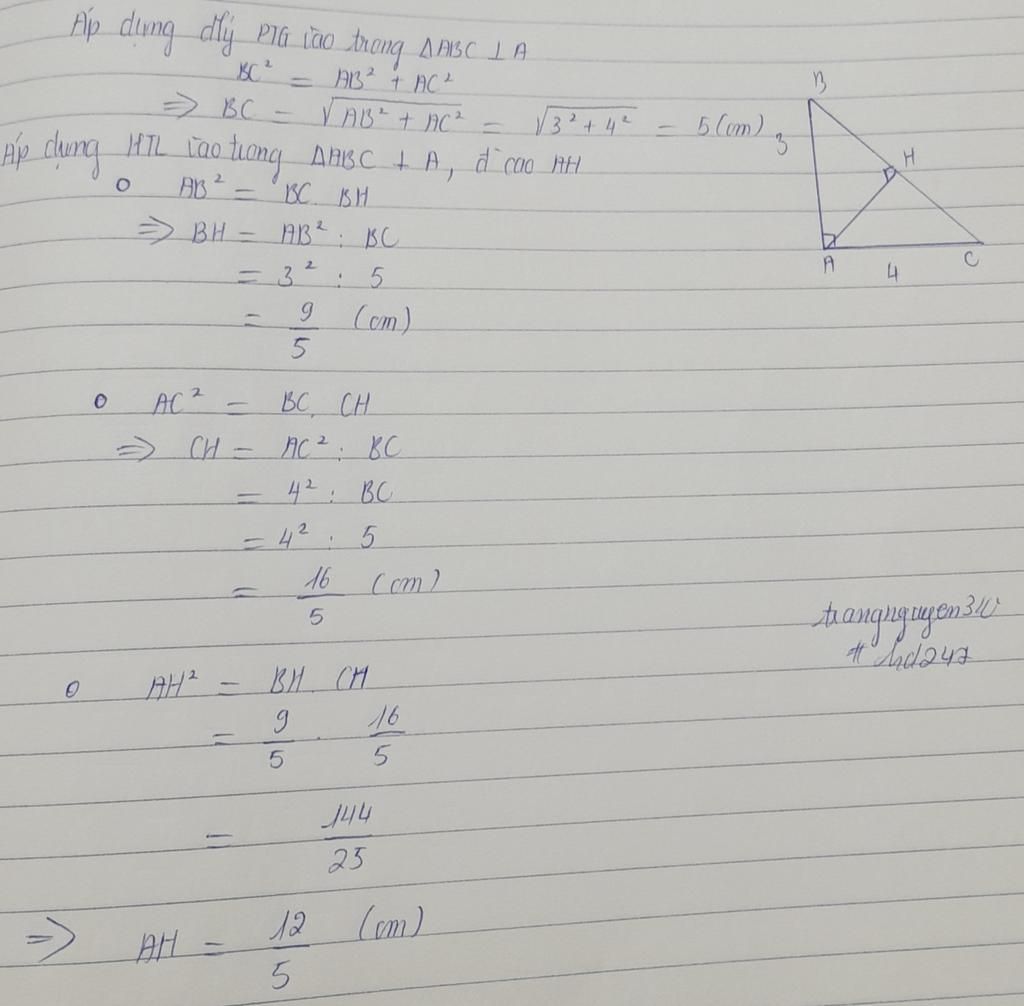 Áp dụng đlý PTG vào trong ΔABC ⊥ A
BC² = AB² + AC²
=> BC = √(AB² + AC²) = √(3² + 4²) = 5 (cm)
Áp dụng HTL vào trong ΔABC ⊥ A, đ cao AH
o AB² = BC. BH
=> BH = AB² : BC
= 3² : 5
= 9/5 (cm)
o AC² = BC. CH
=> CH = AC² : BC
= 4² : BC
= 4² : 5
= 16/5 (cm)
o AH² = BH. CH
= 9/5 . 16/5
= 144/25
=> AH = 12/5 (cm)
B
3
H
A
4
C
# hd247